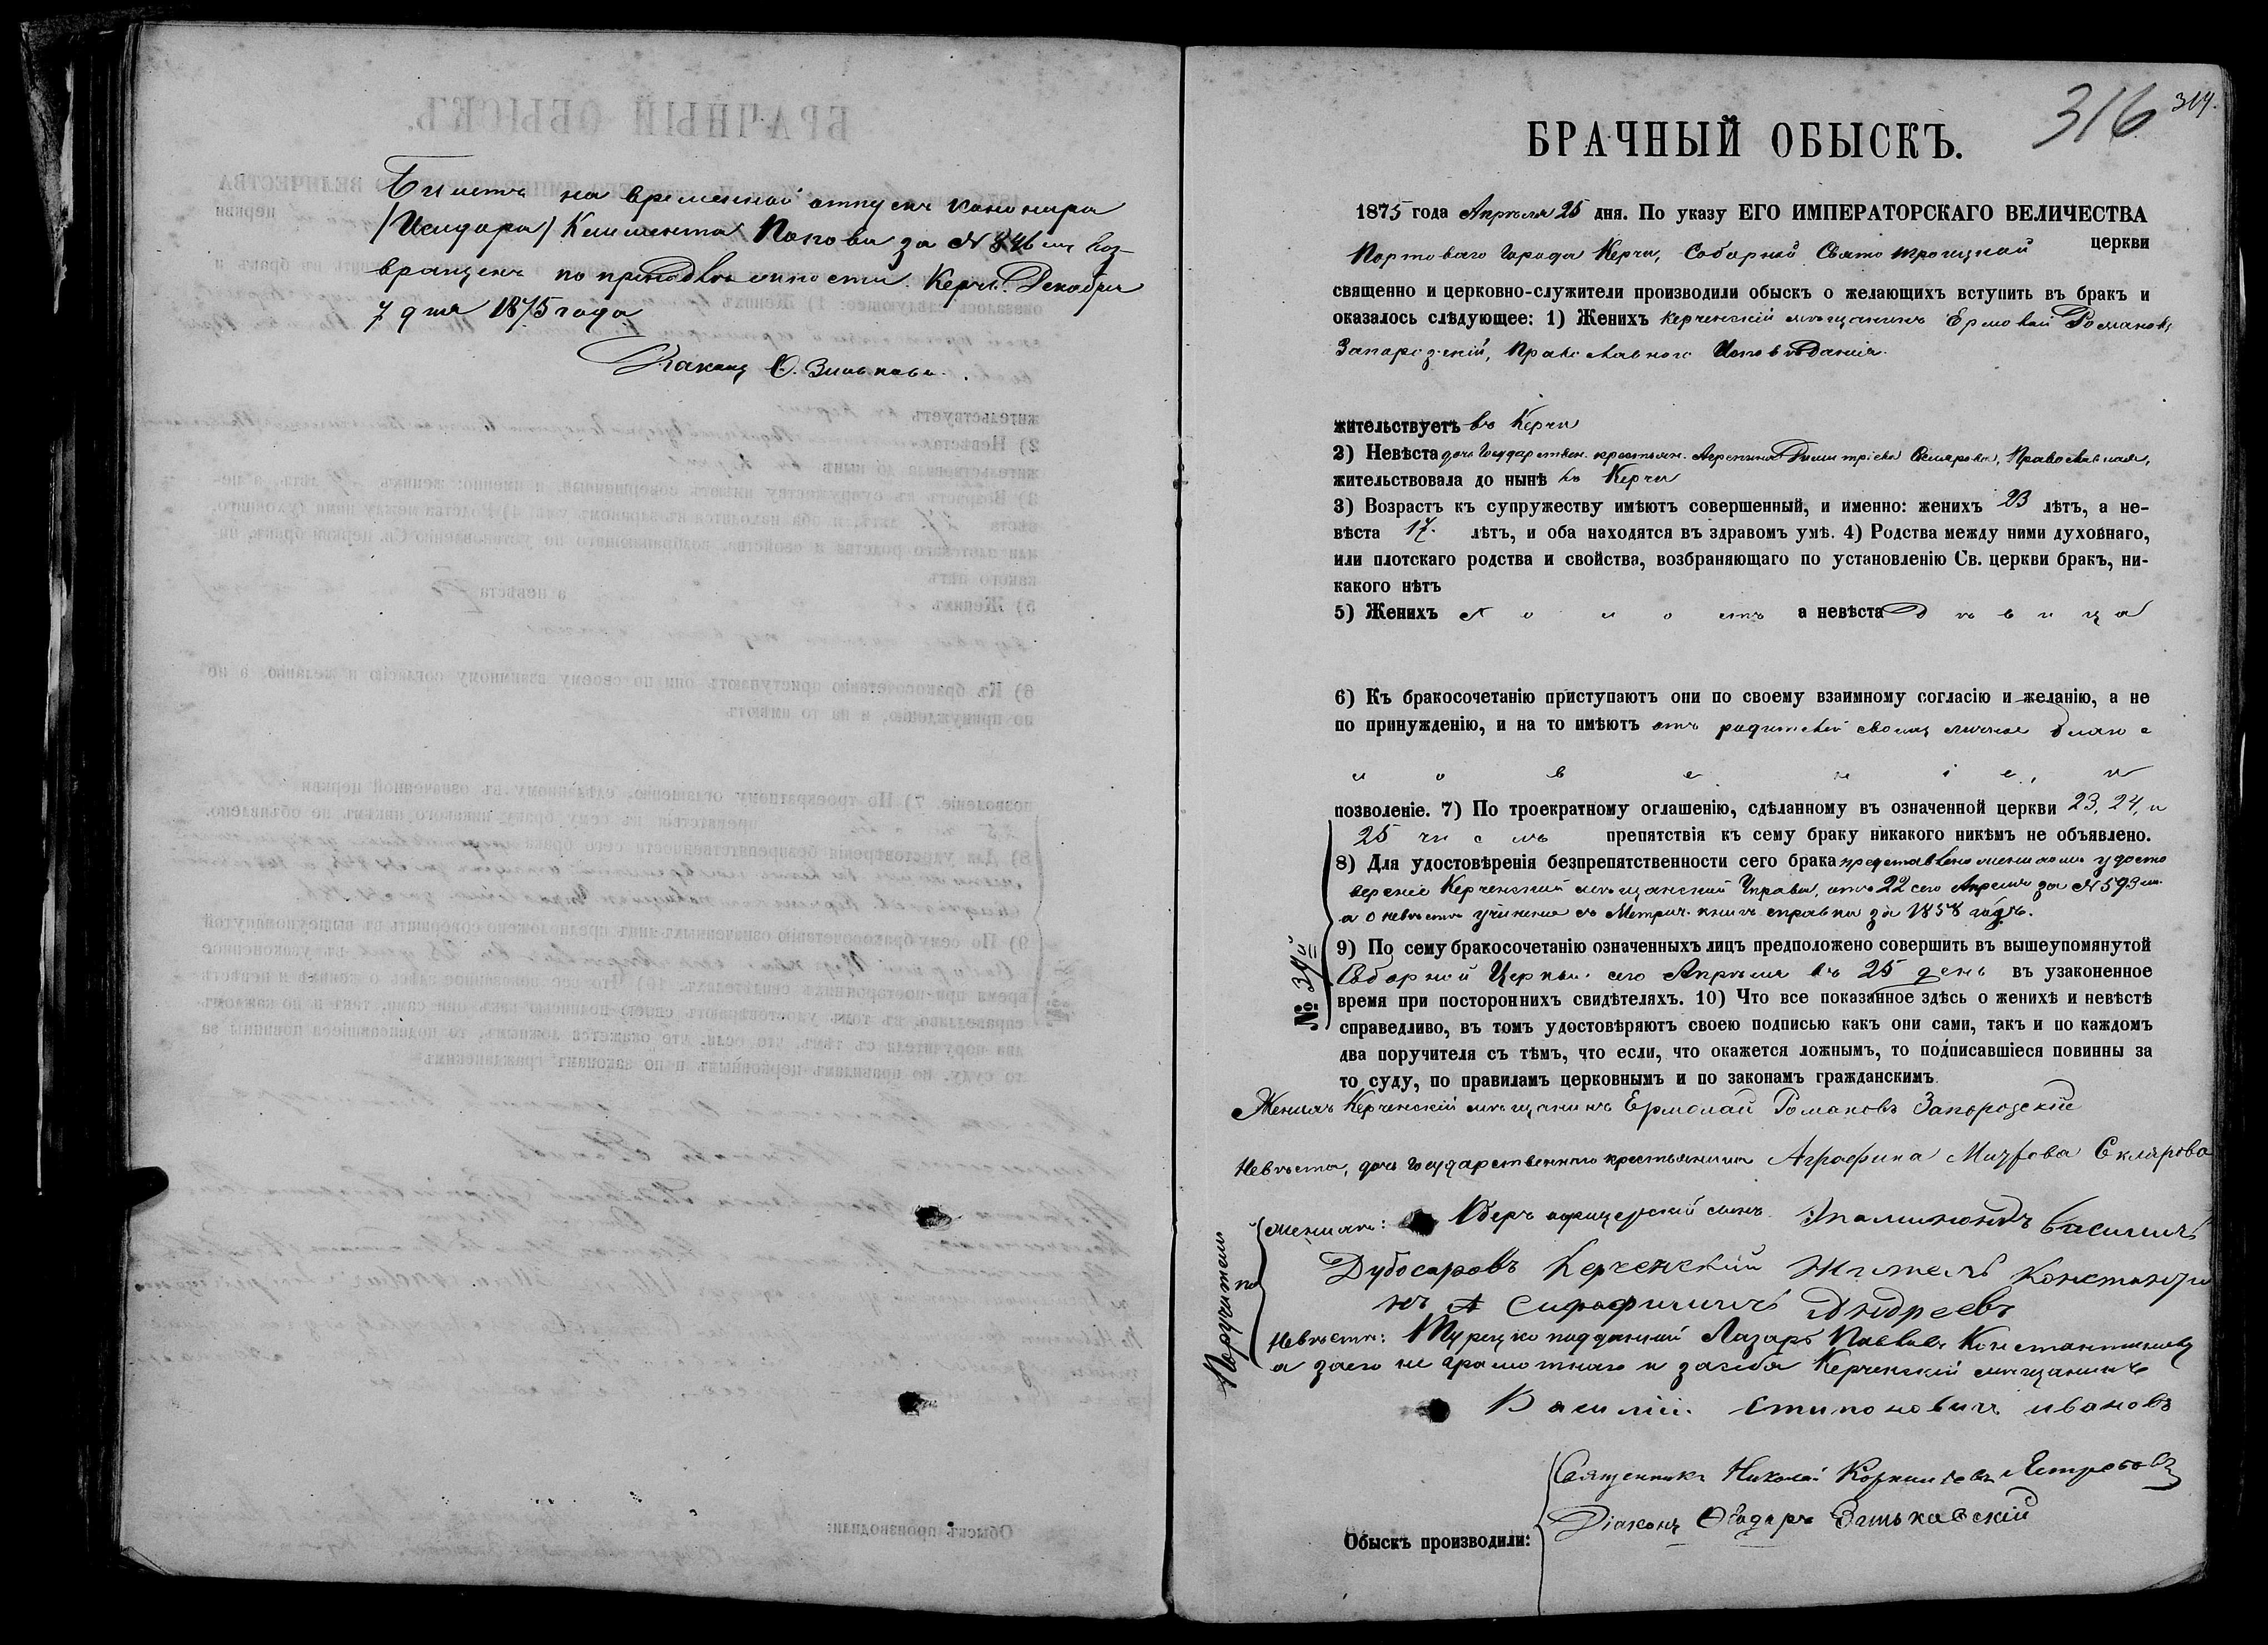 Билетъ на временной отпускъ канонира
/Исидора/ Климента Попова за № 846 мъ воз-
вращенъ по принадлежности. Керчь. Декабря
7 дня 1875 года
Диаконъ Ѳ. Зинькова
316 314.
БРАЧНЫЙ ОБЫСКЪ.
1875 года Апрѣля 25 дня. По указу ЕГО ИМПЕРАТОРСКАГО ВЕЛИЧЕСТВА
Портоваго города Керчи, Соборной Свято Троицкой церкви
священно и церковно-служители производили обыскъ о желающихъ вступить въ бракъ и
оказалось слѣдующее: 1) Женихъ Керченскій мѣщанинъ Ермолай Романовъ
Запородзскій, Православнаго Исповѣданія.
жительствуетъ въ Керчи
2) Невѣста дочь Государствен. крестьян. Агрепина Димитріева Склярова, Православная,
жительствовала до нынѣ въ Керчи
3) Возрастъ къ супружеству имѣютъ совершенный, и именно: женихъ 23 лѣтъ, а не-
вѣста 17. лѣтъ, и оба находятся въ здравомъ умѣ. 4) Родства между ними духовнаго,
или плотскаго родства и свойства, возбраняющаго по установленію Св. церкви бракъ, ни-
какого нѣтъ
5) Женихъ холостъ а невѣста дѣвица
6) Къ бракосочетанію приступаютъ они по своему взаимному согласію и желанію, а не
по принужденію, и на то имѣютъ отъ родителей своихъ личное благо с
ловеніе, и
позволеніе. 7) По троекратному оглашенію, сдѣланному въ означенной церкви 23, 24, и
25 чиселъ препятствія къ сему браку никакого никѣмъ не объявлено.
8) Для удостовѣренія безпрепятственности сего брака представлено женихомъ удосто
вереніе Керченской мѣщанской Управы, отъ 22 сего Апреля за № 593 мъ.
а о невѣстѣ учинена въ Метрич. книгѣ справка за 1858 годъ.
9) По сему бракосочетанію означенныхъ лицъ предположено совершить въ вышеупомянутой
Соборной Церкви. сего Апрѣля въ 25 день въ узаконенное
время при постороннихъ свидѣтеляхъ. 10) Что все показанное здѣсь о женихѣ и невѣстѣ
справедливо, въ томъ удостовѣряютъ своею подписью какъ они сами, такъ и по каждомъ
два поручителя съ тѣмъ, что если, что окажется ложнымъ, то подписавшіеся повинны за
то суду, по правиламъ церковнымъ и по законамъ гражданскимъ
№ 34й
Женихъ Керченскій мѣщанинъ Ермолай Романовъ Запородскій
Невѣста, дочь Государственнаго крестьянина Аграфина Склярова
Поручители по
женихѣ: Оберъ офицерскій сынъ Эпаминондъ Василичъ
Дубосаровъ Керченскій житель Константи
нъ Андреевъ
Невѣстѣ: Турецко подданный Лазарь Павловъ Константиновъ
а заего не грамотнаго и засебя Керченскій мѣщанинъ
Василій Стипоновичъ ивановъ
Обыскъ производили:
Священникъ Николай Корниловъ
Діаконъ Ѳеодоръ Зиньковскій